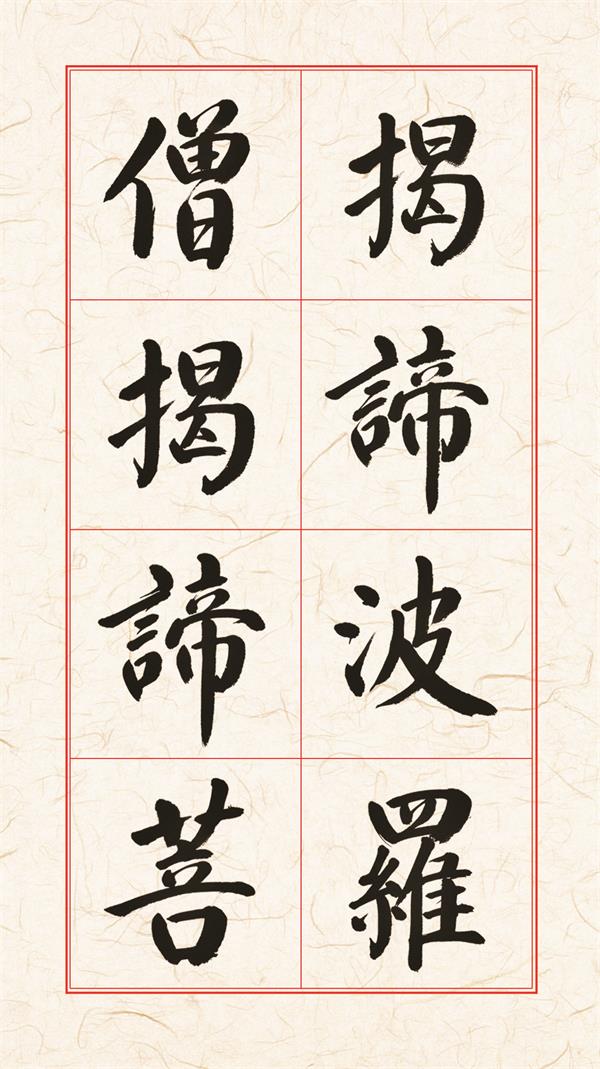 揭諦波羅
僧揭諦菩